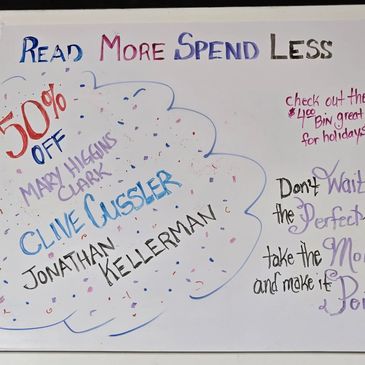 READ MORE SPEND LESS
50%
OFF
MARY HIGGINS
CLARK
CLIVE CUSSLER
JONATHAN
KELLERMAN
check out the
$4.00
BIN great
for holidays
Don't Wait
the Perfect
take the Mo
and make it